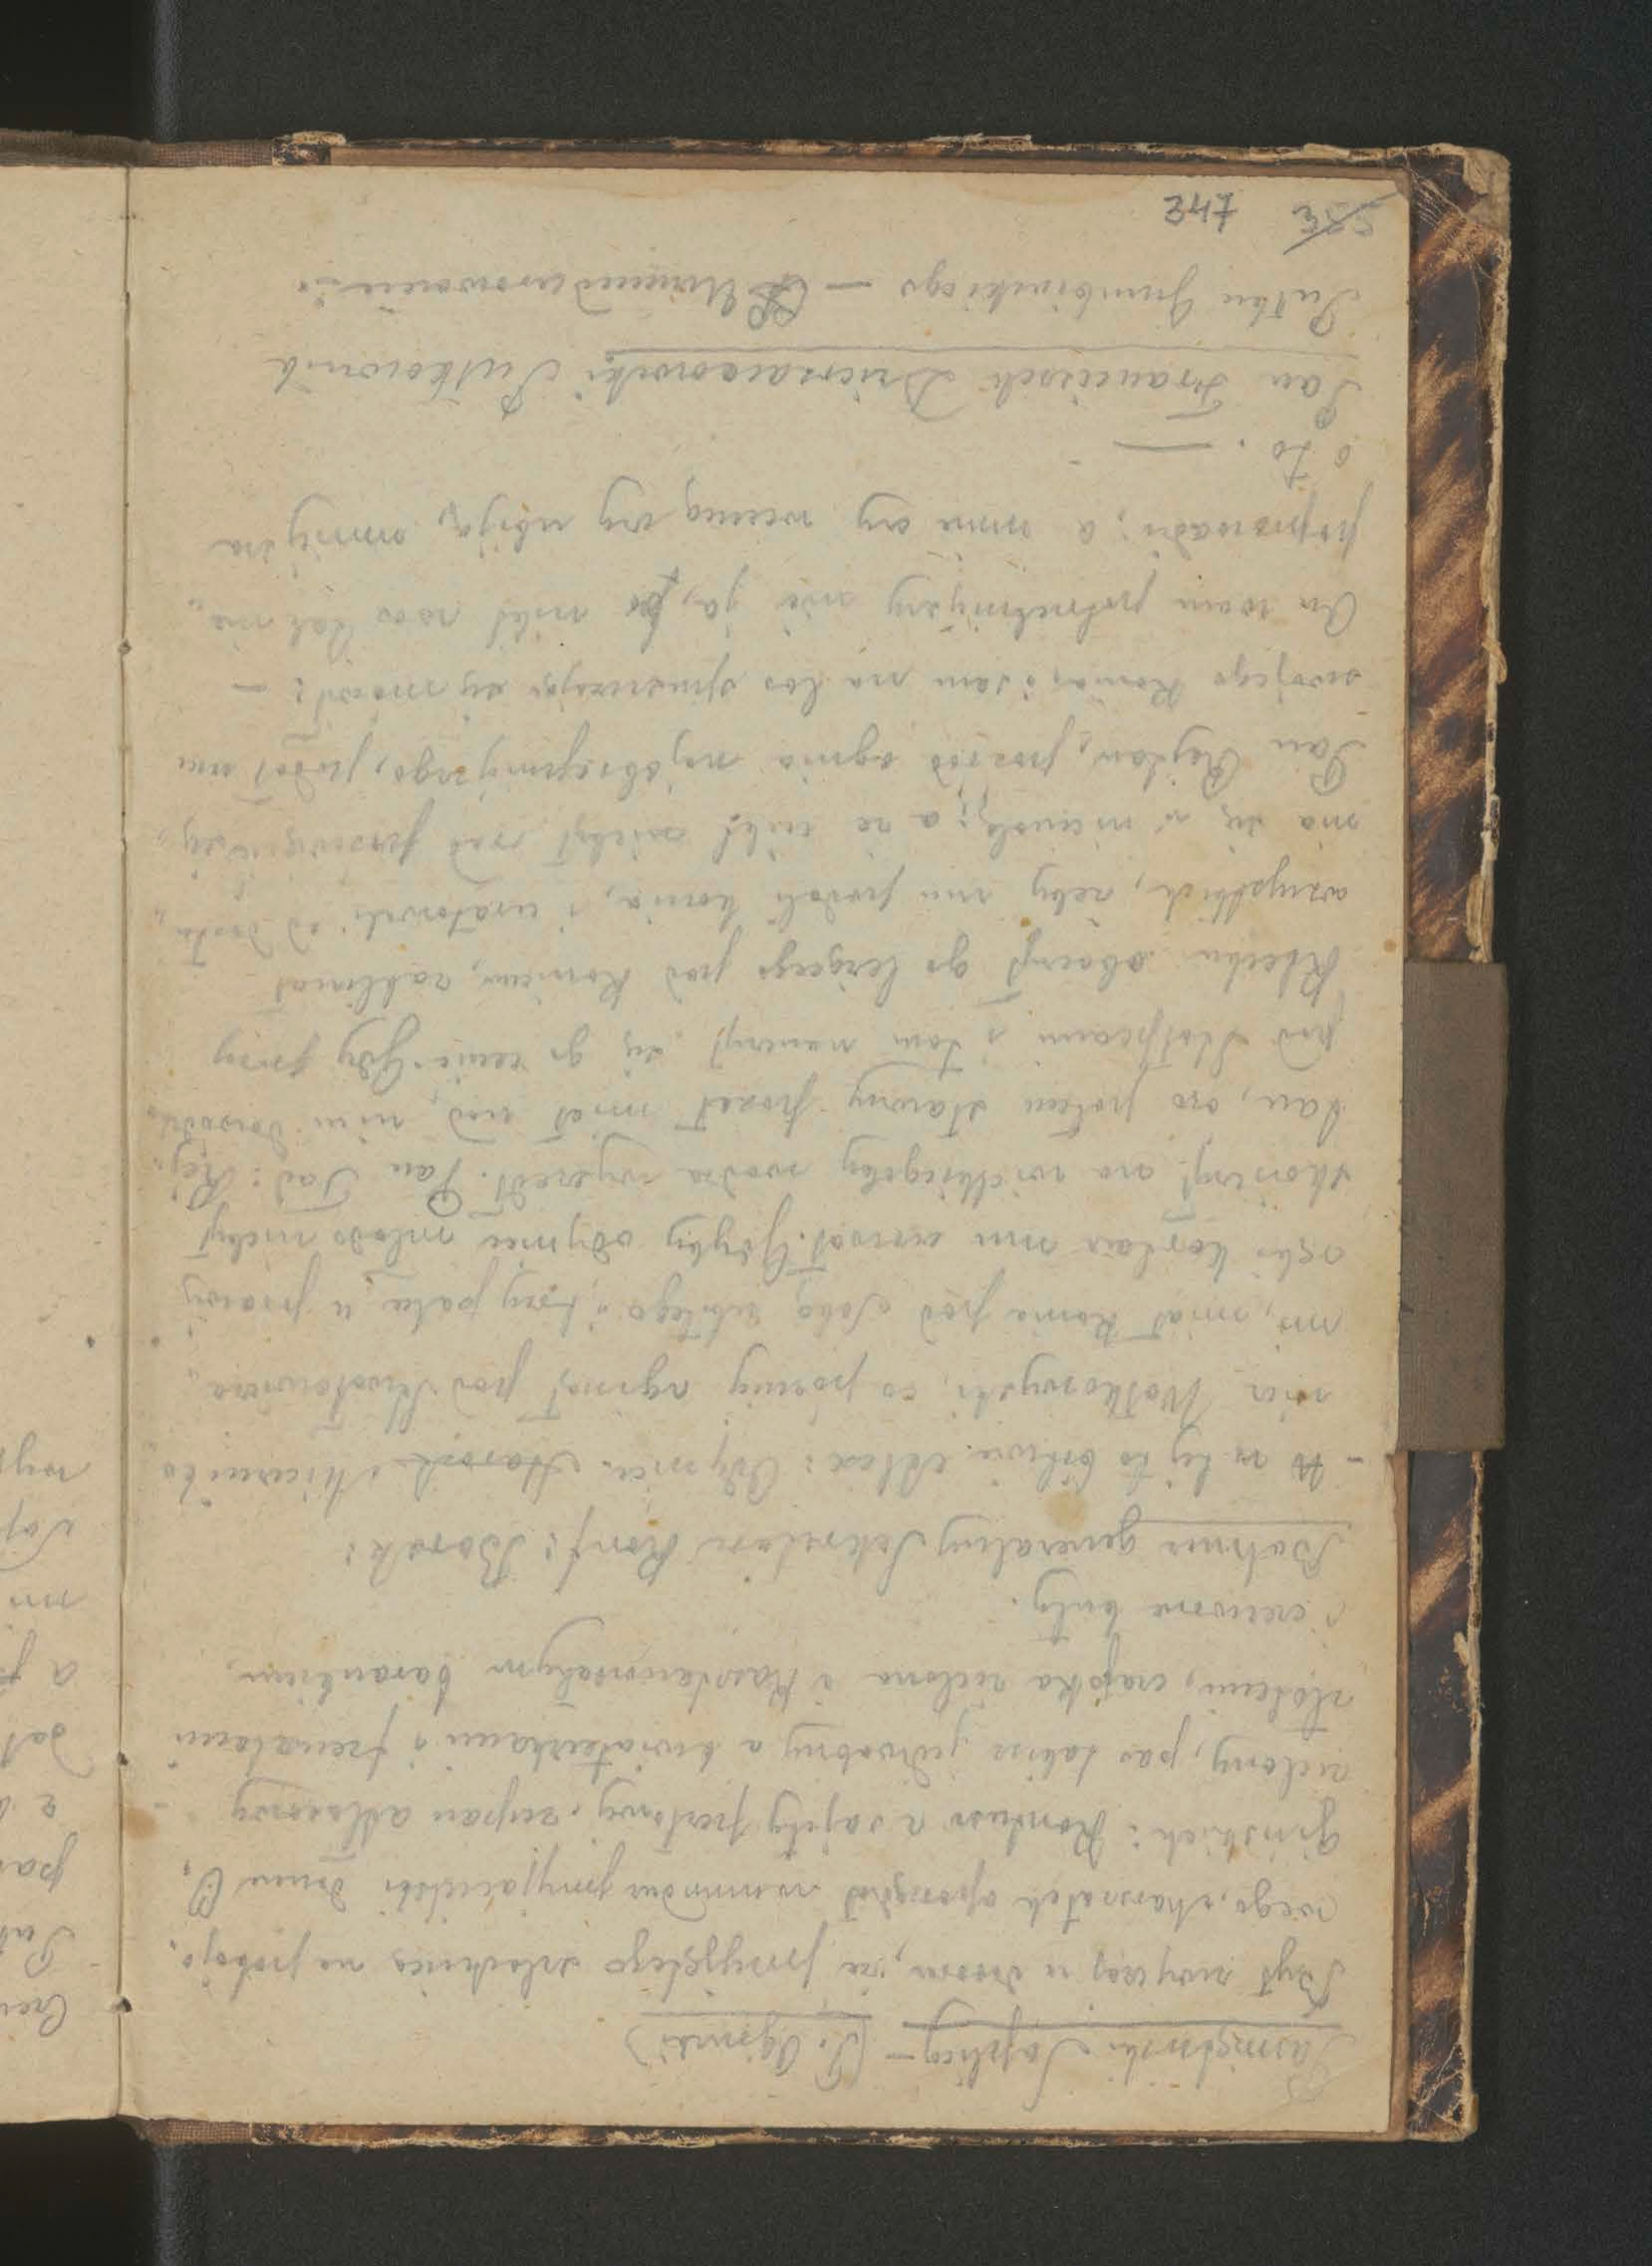 347
Pamiętniki Soplicy – (S. Ogiński)
Był zwyczaj u dworu, że przyjętego szlachcica na pokojo„
wego,
Gińskich: Kontusz z sajety perłowy, żupan atłasowy
zielony, pas także jedwabny z kwiateczkami i frenzlami
złotemi, czapka zielona z Krasławowskym barankiem,
i czerwone buty.
Bohusz generalny Sekretarz Konf: Barsk:
– W tej to bitwie
wicz Wołkowyski, co później zginął pod Stwołowicza„
mi, miał konia pod sobą zabitego, i trzy palce u prawej
ręki kartacz mu urwał. Gdyby odyniec młodo niebył
skończył na wielkiegoby wodza wyszedł. Pan Tad: Rej„
tan, oto potem sławny poseł miał nad nim dowodz„
pod Stołpcami i tam nauczył się go cenić. Gdy przy
Klecku obaczył go leżącego pod koniem, zaklinał
wszystkich, żeby mu podali konia, i uratowali od dosta„
nia się w niewolę; a że nikt niebył rad
Pan Rejtan, pośród ognia najobfitszego, podał mu
swojego konia, i sam na los spuszczając się mówił: –
On wam potrzebniejszy niż ja, bo nikt was tak nie„
poprowadzi; a mnie czy wezmą czy ubiją, mniejsza
o to. —
Pan Franciszek Dzierżanowski Pułkownik
Pułku Gumbińskiego – Umundurowanie: